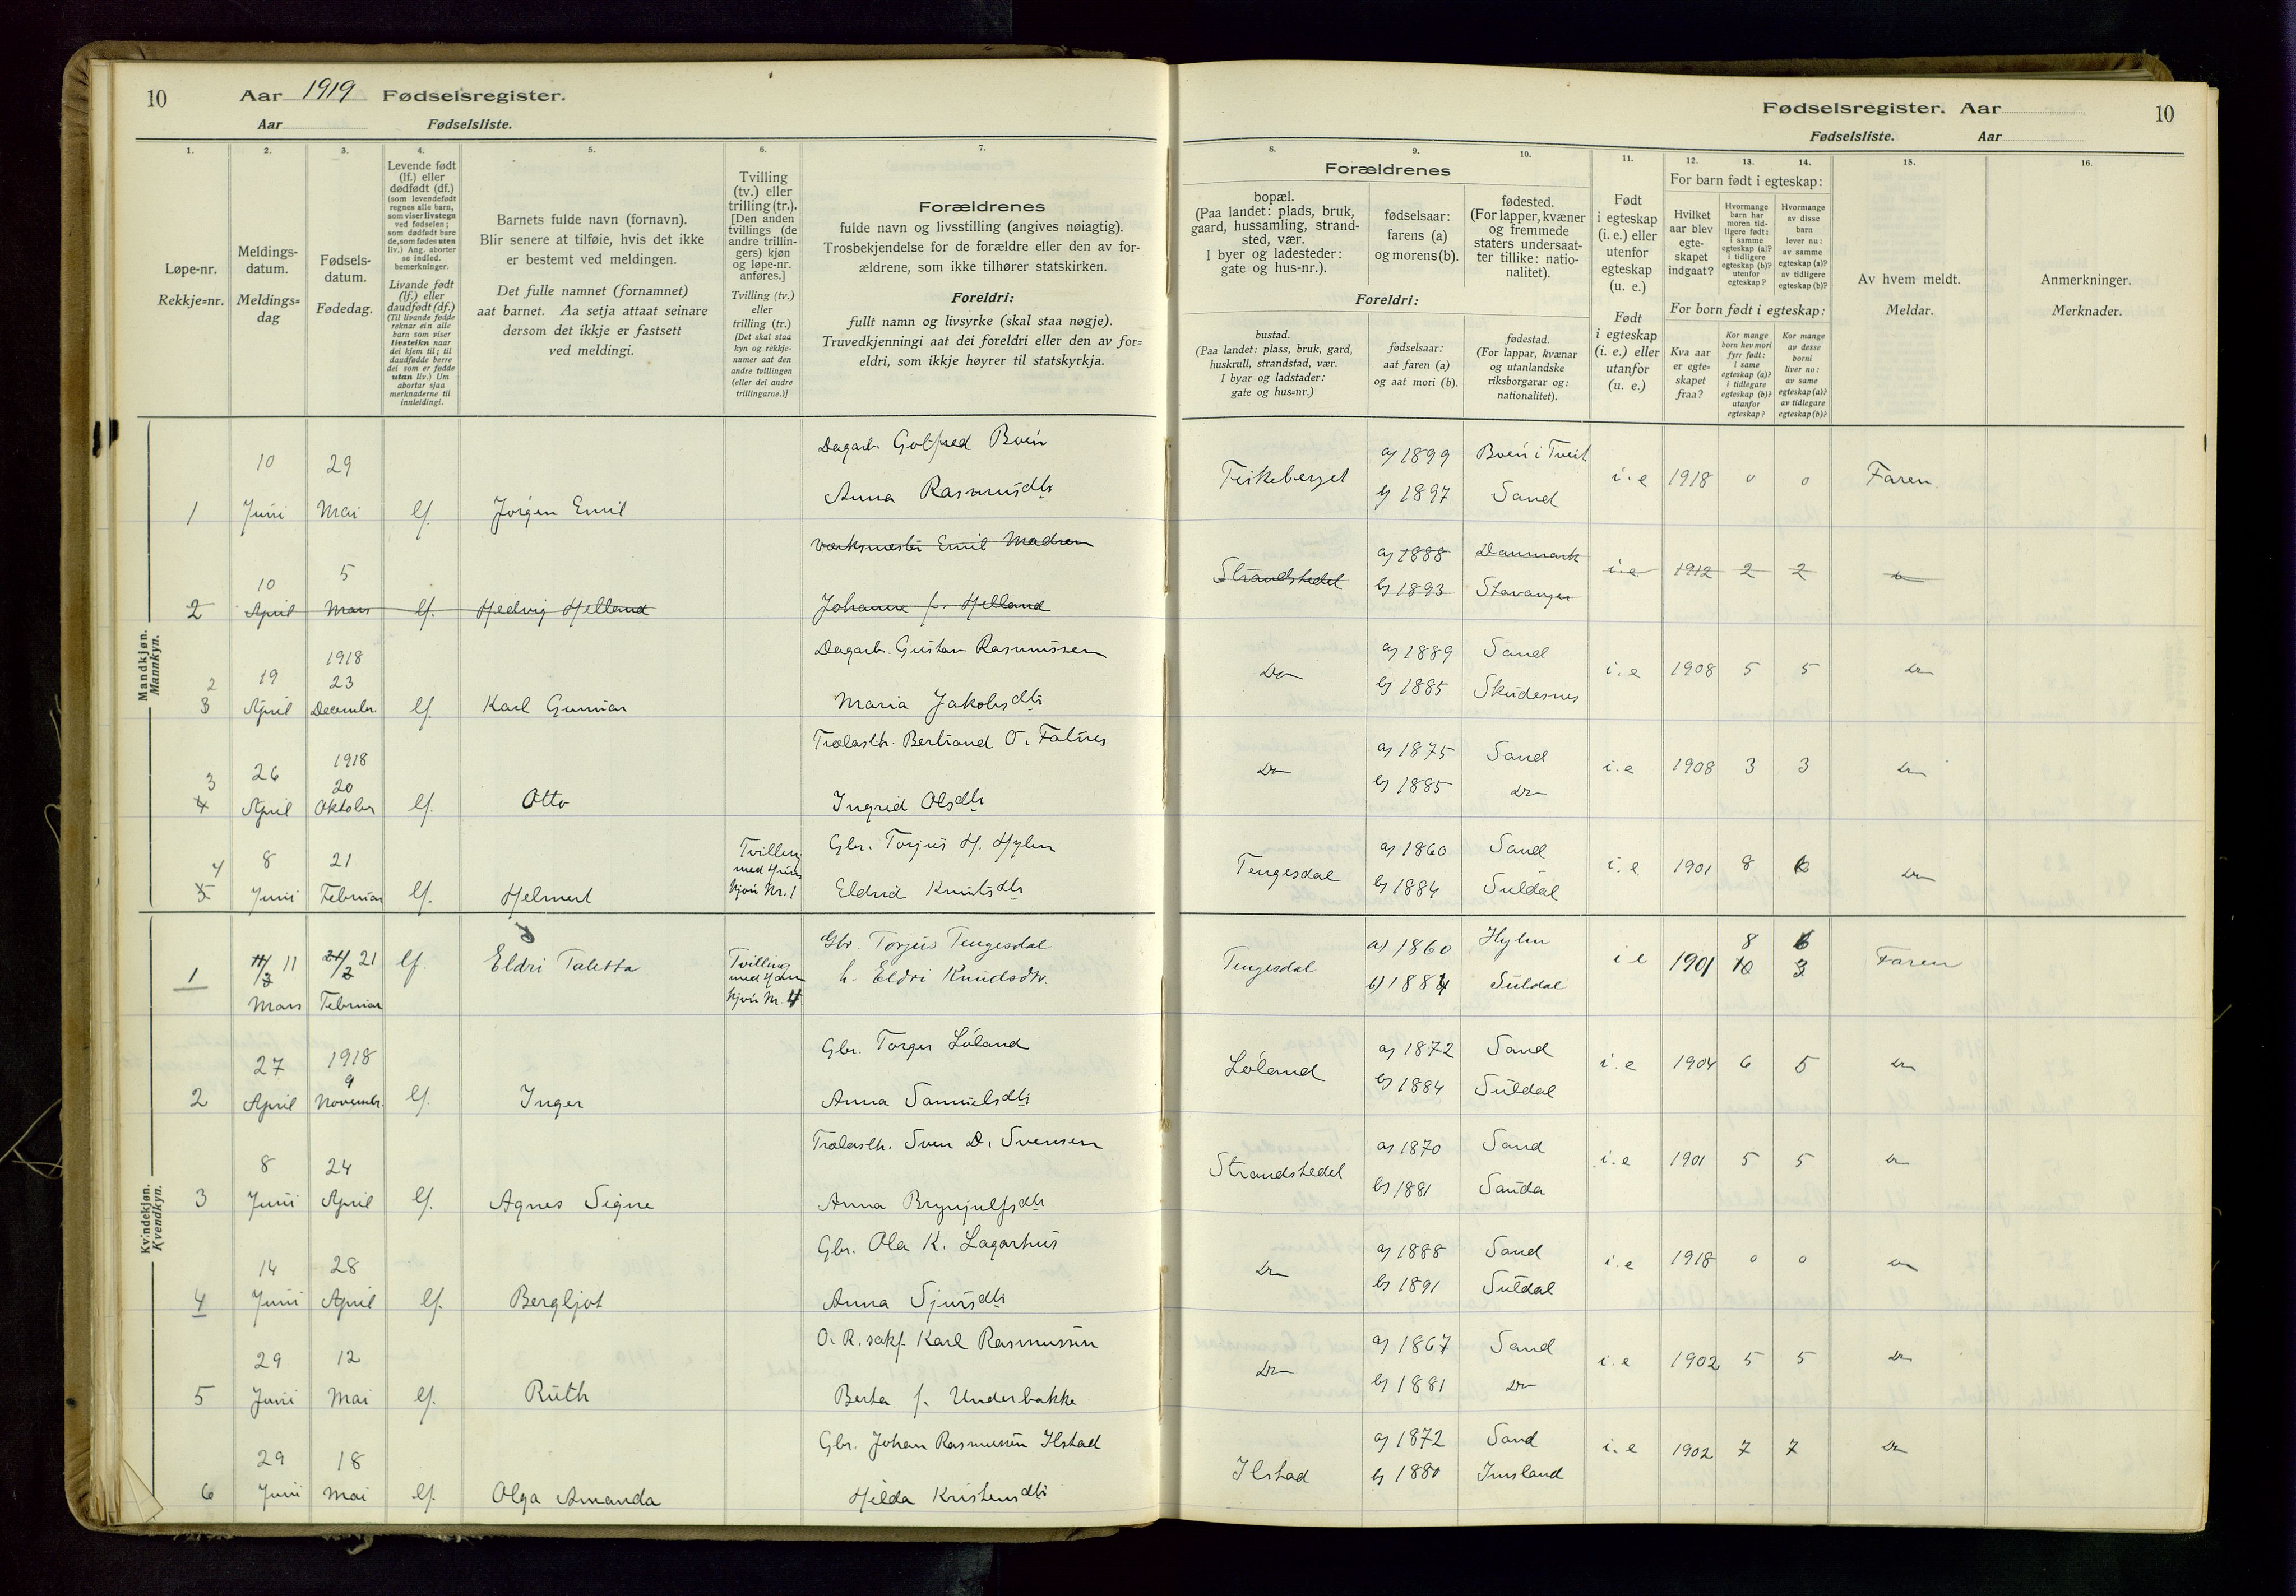 10 Aar 1919 Fødselsregister.
Aar Fødselsliste.
Fødselsregister. Aar 10
Fødselsliste. Aar
1.
Løpe-nr.
Rekkje=nr.
2.
Meldings-
datum.
Meldings=
dag
3.
Fødsels-
datum.
Fødedag.
4.
Levende født
(lf.) eller
dødfødt (df.)
(som levendefødt
regnes alle barn,
som viser livstegn
ved fødselen;
som dødfødt bare
de, som fødes uten
liv.) Ang. aborter
se indled.
bemerkninger.
Livande født
(lf.) eller
daudfødt (df.)
(Til livande fødde
reknar ein alle
barn som viser
livsteikn naar
dei kjem til; til
daudfødde berre
dei som er fødde
utan liv.) Um
abortar sjaa
merknaderne til
innleidingi.
5.
Barnets fulde navn (fornavn).
Blir senere at tilføie, hvis det ikke
er bestemt ved meldingen.
Det fulle namnet (fornamnet)
aat barnet. Aa setja attaat seinare
dersom det ikkje er fastsett
ved meldingi.
6.
Tvilling
(tv.) eller
trilling (tr.).
[Den anden
tvillings (de
andre trillin-
gers) kjøn
og løpe-nr.
anføres.]
Tvilling (tv.)
eller
trilling (tr.)
[Det skal staa
kyn og rekkje-
numer aat den
andre tvillingen
(eller dei andre
trillingarne.)]
7.
Forældrenes
fulde navn og livsstilling (angives nøiagtig).
Trosbekjendelse for de forældre eller den av for-
ældrene, som ikke tilhører statskirken.
Foreldri:
fullt namn og livsyrke (skal staa nøgje).
Truvedkjenningi aat dei foreldri eller den av for=
eldri, som ikkje høyrer til statskyrkja.
Forældrenes
8.
bopæl.
(Paa landet: plads, bruk,
gaard, hussamling, strand-
sted, vær.
I byer og ladesteder:
gate og hus-nr.).
9.
fødselsaar:
farens (a)
og morens (b).
10.
fødested.
(For lapper, kvæner
og fremmede
staters undersaat-
ter tillike: natio-
nalitet).
Foreldri:
bustad.
(Paa landet: plass, bruk, gard,
huskrull, strandstad, vær.
I byar og ladstader:
gate og hus=nr.)
fødselsaar:
aat faren (a)
og aat mori (b).
fødestad.
(For lappar, kvænar
og utanlandske
riksborgarar og:
nationalitet).
11.
Født
i egteskap
(i. e.) eller
utenfor
egteskap
(u. e.)
Født
i egteskap
(i. e.) eller
utanfor
(u. e.)
12. 13. 14.
For barn født i egteskap:
Hvilket
aar blev
egte-
skapet
indgaat?
Hvormange
barn har
moren tid-
ligere født:
i samme
egteskap (a)?
i tidligere
egteskap (b)?
utenfor
egteskap?
Hvormange
av disse
barn
lever nu:
av samme
egteskap (a)?
av tidligere
egteskap (b)?
For born født i egteskap:
Kva aar
er egte=
skapet
fraa?
Kor mange
born hev mori
fyrr født:
i same
egteskap (a)?
i tidlegare
egteskap (b)?
utanfor
egteskap?
Kor mange
av desse
borni
liver no:
av same
egteskap (a)?
av tidlegare
egteskap (b)?
15.
Av hvem meldt.
Meldar.
16.
Anmerkninger.
Merknader.
Mandkjøn.
Mannkyn.
Dagarb. Golfred Bøen a) 1899 Bøen i Tveit
10 29 Fiskeberget i. e 1918 0 0 Faren.
Anna Rasmusdtr b) 1897 Sand
1 Juni Mai lf. Jørgen Emil
Værksmester Emil Madsen a) 1888 Danmark
10 5 Strandstedet i. e 1912 2 2 Do
2 April Mars lf. Hedvig Helland Johanne f. Helland b) 1893 Stavanger
Dagarb. Gustav Rasmussen a) 1889 Sand
2 19 1918 23 Do i. e 1908 5 5 Do
3 April December lf. Karl Gunnar Maria Jakobsdtr b) 1885 Skudesnes
Trælasth. Bertrand O. Fatnes a) 1875 Sand
3 26 1918 20 Do i. e 1908 3 3 Do
4 April Oktober lf. Otto Ingrid Olsdtr b) 1885 Do
Gbr. Torjus H. Hylen a) 1860 Sand
4 8 21 Tvilling med Kvinde kjøn Nr. 1 Tengesdal i. e 1901 8 6 Do
5 Juni Februar lf. Helmert Eldrid Knutsdtr b) 1884 Suldal
Kvindekjøn.
Kvendkyn.
Gbr. Torjus Tengesdal a) 1860 Hylen 8 6
1 11/3 11 21/2 21 lf. Eldri Taletta Tvilling med Mandkjøn Nr. 4 h. Eldri Knudsdtr. Tengesdal b) 1884 Suldal i e 1901 10 3 Faren
Mars Februar
Gbr. Torger Løland a) 1872 Sand
27 1918 9 Løland i. e 1904 6 5 Do
2 April November lf. Inger Anna Samuelsdtr b) 1884 Suldal
Trælasth. Sven D. Svensen a) 1870 Sand
8 24 Strandstedet i. e 1901 5 5 Do
3 Juni April lf. Agnes Signe Anna Brynjulfsdtr b) 1881 Sauda
Gbr. Ola K. Lagarhus a) 1888 Sand
14 28 Do i. e 1918 0 0 Do
4 Juni April lf. Bergljot Anna Sjursdtr b) 1891 Suldal
O. R. sakf. Karl Rasmussen a) 1867 Sand
29 12 Do i. e 1902 5 5 Do
5 Juni Mai lf. Ruth Berta f. Underbakke b) 1881 Do
Gbr. Johan Rasmussen Ilstad a) 1872 Sand
29 18 Ilstad i. e 1902 7 7 Do
6 Juni Mai lf. Olga Amanda Hilda Kristensdtr b) 1880 Imsland